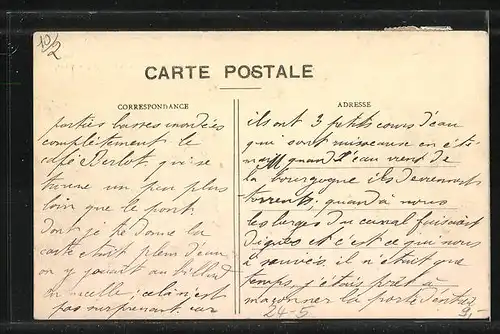 10/2
CARTE POSTALE
CORRESPONDANCE
parties basses inondées
complètement le
café Berlot, qui se
trouve un peu plus
loin que le pont
dont je te donne la
carte était plein d'eau
on y jouait au billard
en nacelle; cela n'est
pas surprenant, car
ADRESSE
ils ont 3 petits cours d'eau
qui sont ruisseaux en été
mais quand l'eau vient de
la bourgogne ils deviennent
torrents; quand à nous
les berges du canal faisaient
digues et c'est ce qui nous
a sauvés, il n'était que
temps, j'étais prêt à
maçonner la porte d'entrée
24-5
9,-